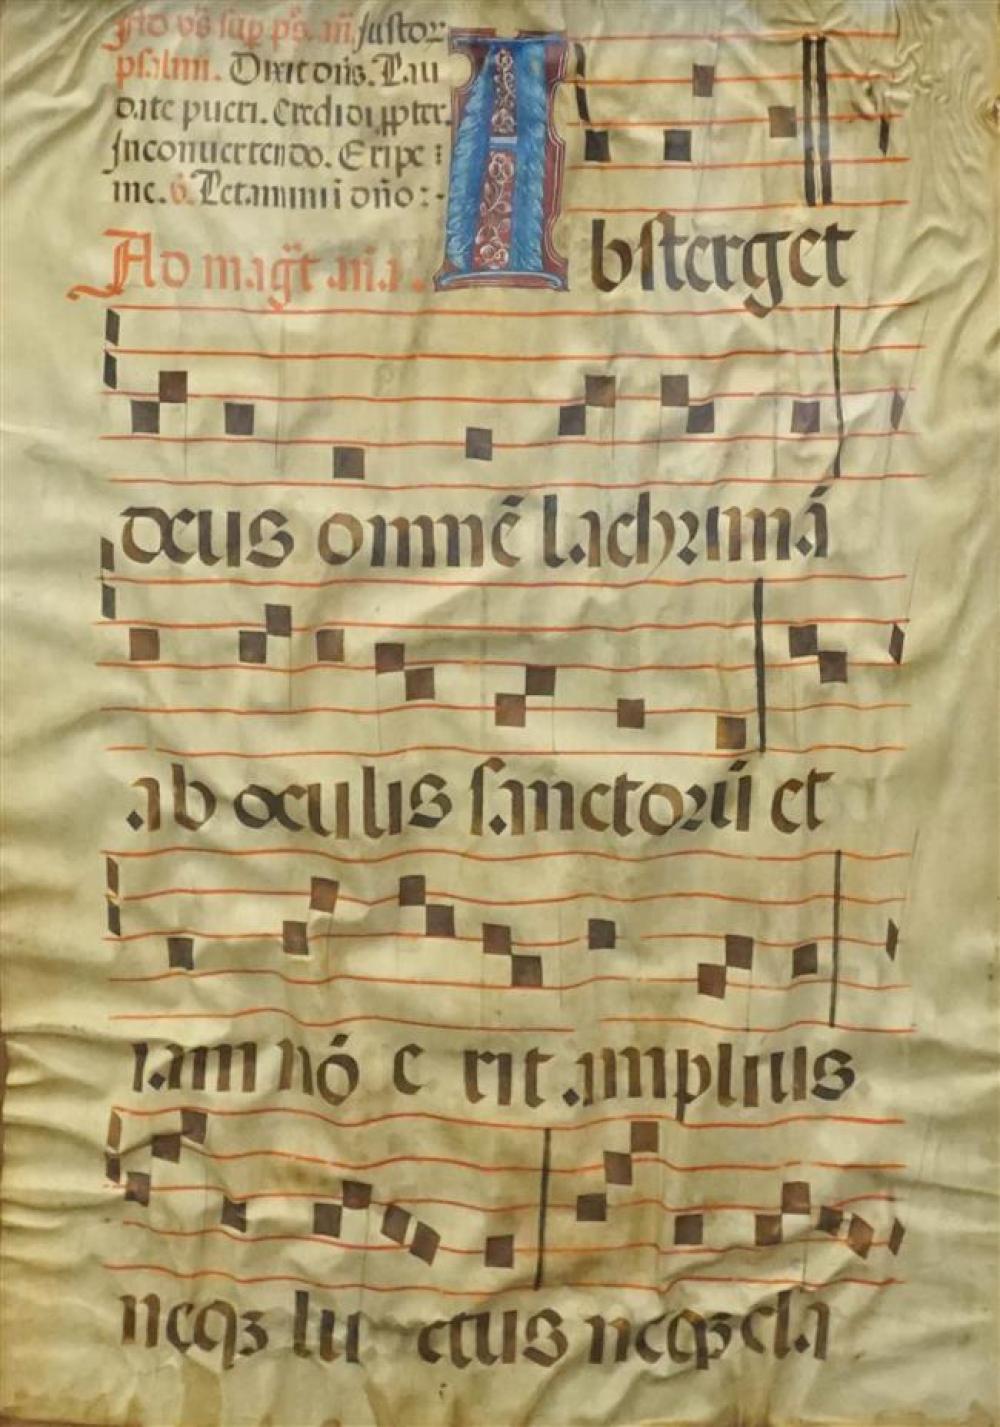 Ad vs̃ sup ps̃. añ Justoꝝ
psalmi. Dixit dñs. Lau
date pueri. Credidi ꝓpter.
Jnconuertendo. Eripe
me. Letamini ĩ dño:-
Ad mag̃t. aña. A bsterget
deus omnẽ lachꝛimã
ab oculis sanctoꝛũ et
iam nõ e rit amplius
neqꝫ lu ctus neqꝫ cla